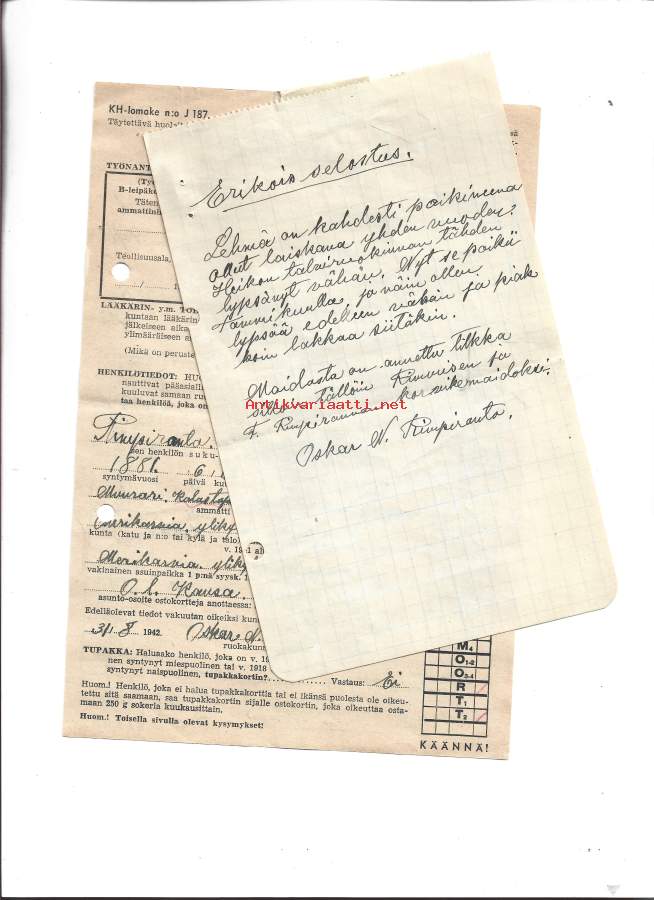 KH-lomake n:o J 187.
Täytettävä
TYÖNANT
(Ty
B-leipäk
Täten
ammattin
Teollisuusala,
/ 1
LÄÄKÄRIN- y.m. TOD
kuntaan lääkärin
jälkeiseen aika
ylimääräiseen a
(Mikä on peruste
HENKILÖTIEDOT: HUO
nauttivat pääasiall
kuuluvat saman ru
taa henkilöä, joka on
Rimpiranta.
sen henkilön suku-
1881. 6/
syntymävuosi päivä ku
Muurari, Kalastaja
ammatti
Merikarvia, ylikylä
kunta (katu ja n:o tai kylä ja talo)
v. 19 1 al
Merikarvia, ylikyl
vakinainen asuinpaikka 1 p:nä syysk. 1
O. s. Kausa
asunto-osoite ostokortteja anottaessa:
Edelläolevat tiedot vakuutan oikeiksi kun
31/8 1942. Oskar N.
ruokakun
TUPAKKA: Haluaako henkilö, joka on v. 19
nen syntynyt miespuolinen tai v. 1918
syntynyt naispuolinen, tupakkakortin? Vastaus: Ei
Huom.! Henkilö, joka ei halua tupakkakorttia tai ei ikänsä puolesta ole oikeu-
tettu sitä saamaan, saa tupakkakortin sijalle ostokortin, joka oikeuttaa osta-
maan 250 g sokeria kuukausittain.
Huom.! Toisella sivulla olevat kysymykset!
M4
O1-2
O3-4
R
T1
T2
KÄÄNNÄ!
Erikois selostus.
Lehmä on kahdesti poikineena
ollut laiskana yhden vuoden?
Heikon talviruokinnan tähden
lypsänyt vähän. Nyt se poikii
tammikuulla, ja näin ollen
lypsää edelleen vähän ja piak
koin lakkaa siitäkin.
Maidosta on annettu tilkka
silloin tällöin Rinnisen ja
F. Rimpirannan korvikemaidoksi.
Oskar N. Rimpiranta.
Antikvariaatti.net